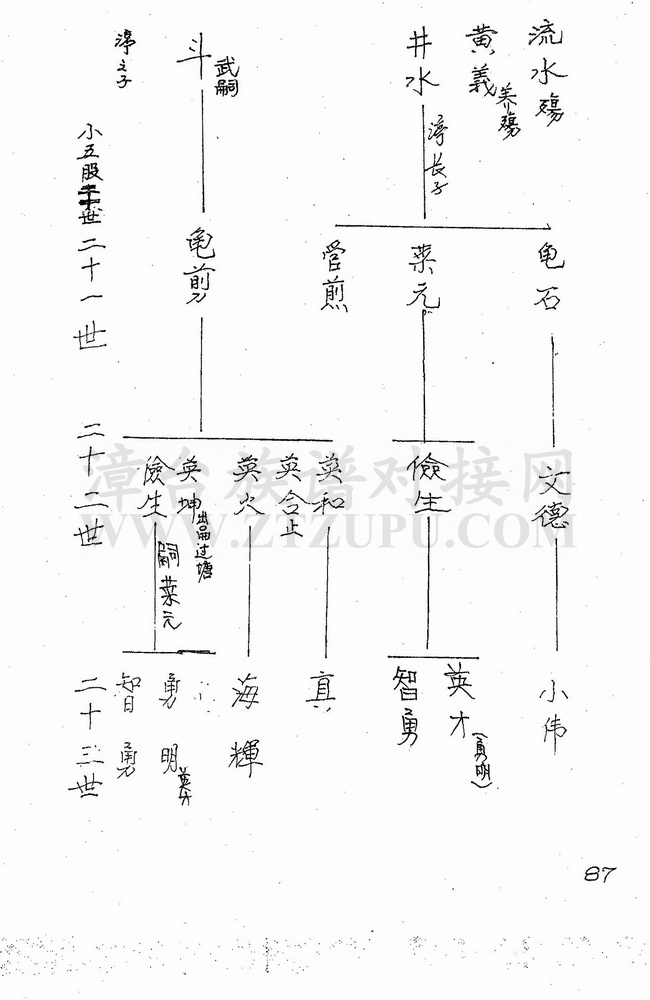 流水殤
黄義
养殤
井水
淳長子
斗
武嗣
淳之子
小五股
世二十一世
龟石
菜元
營煎
龟剪
二十二世
文德
儉生
英和
英合止
英火
英坤
出吊过塘
儉生
嗣菜元
二十三世
小伟
英才
(勇明)
智勇
真
海輝
勇明
英才
智勇
漳台族谱对接网
WWW.ZTZUPU.COM
87